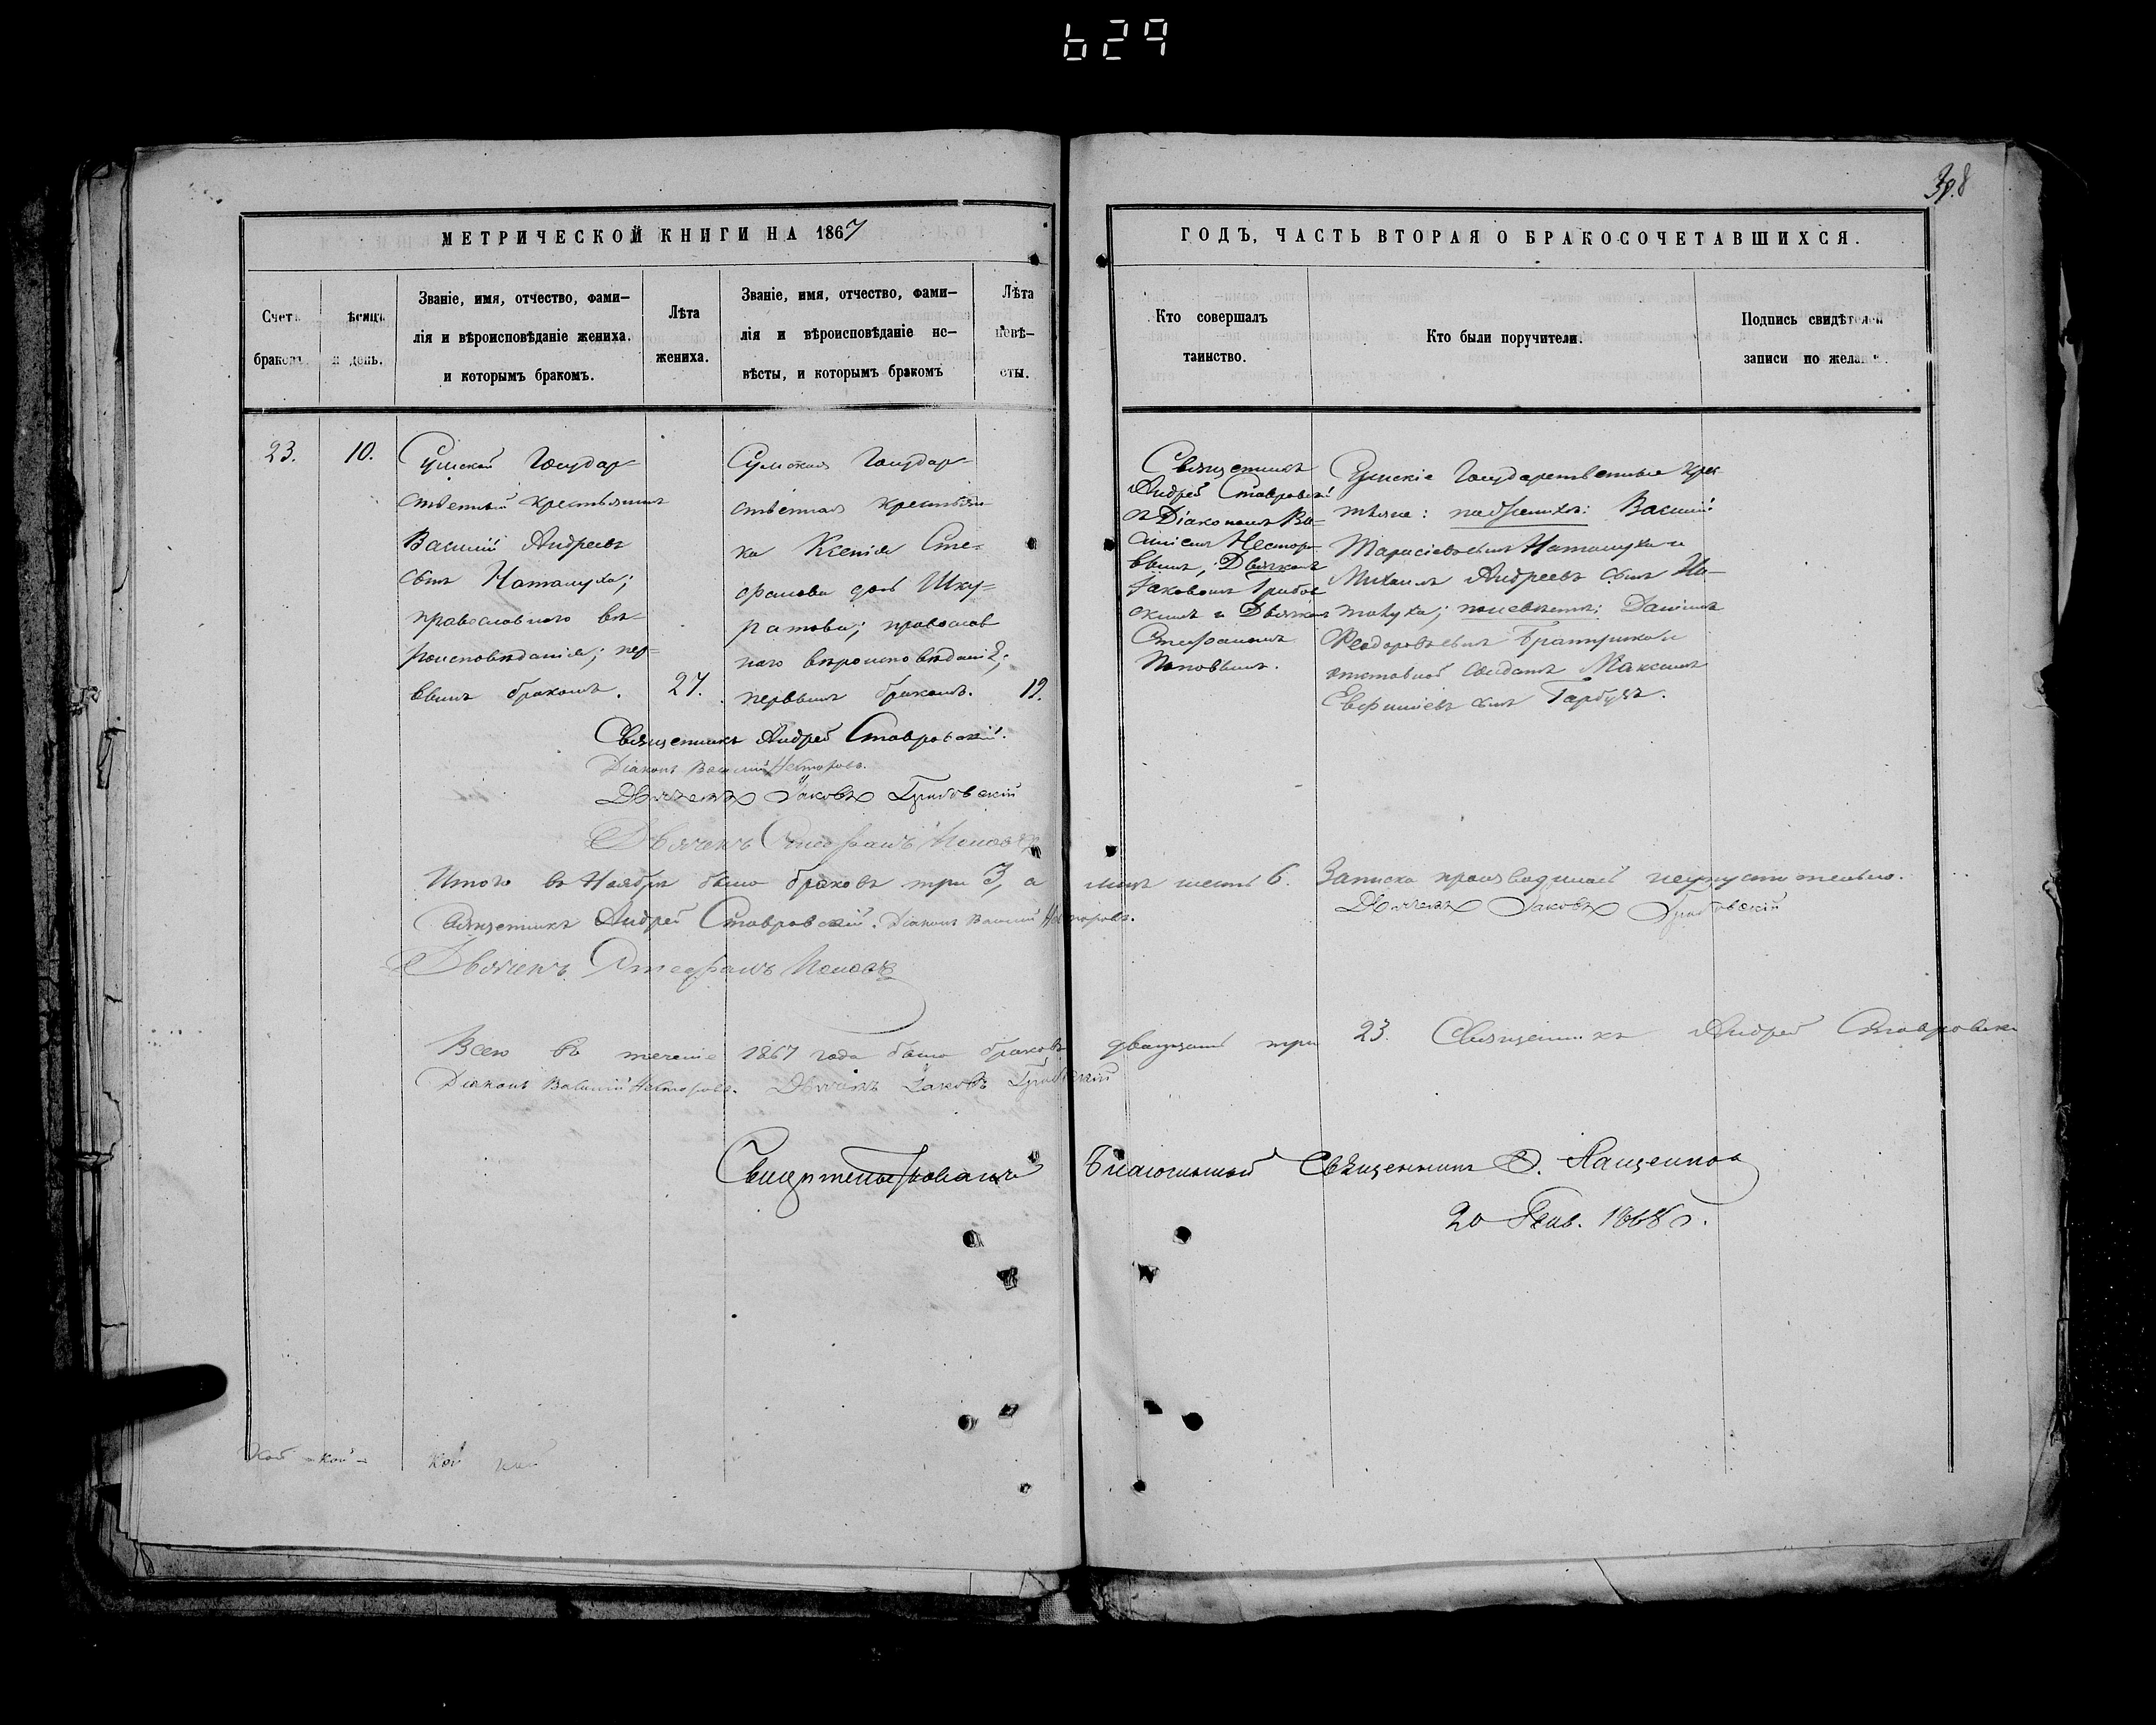 629
398
МЕТРИЧЕСКОЙ КНИГИ НА 1867
ГОДЪ, ЧАСТЬ ВТОРАЯ О БРАКОСОЧЕТАВШИХСЯ.
Счетъ
браковъ.
ѣсяцъ
и день.
Званіе, имя, отчество, фами–
лія и вѣроисповѣданіе жениха.
и которымъ бракомъ.
Лѣта
жениха.
Званіе, имя, отчество, фами–
лія и вѣроисповѣданіе не–
вѣсты, и которымъ бракомъ
Лѣта
невѣ–
сты.
Кто совершалъ
таинство.
Кто были поручители.
Подпись свидѣтелей
записи по желан
23.
10.
Сумской Государ-
ственный крестьянинъ
Василій Андреевъ
сынъ Наталуха;
православнаго вѣ-
роисповѣданія; пер-
вымъ бракомъ.
27.
Сумская Государ-
ственная крестьян-
ка Ксенія Сте-
фанова дочь Шку-
ратова; православ
наго вѣроисповѣданія;
первымъ бракомъ.
19.
Священникъ
Андрей Ставровскій
съ Діакономъ Ва-
силіемъ Нестор-
вымъ, Дьячкомъ
Іаковомъ Грибов
скимъ и Дьячкомъ
Стефаномъ
Поповымъ.
Сумскіе Государственные крес
тьяне: по женихѣ: Василій
Тарасіевъ сынъ Наталуха и
Михаилъ Андреевъ сынъ На-
талуха; по невѣстѣ: Даніилъ
Феодоровъ сынъ и
отставной солдатъ Максимъ
Евфиміевъ сынъ Гарбузъ.
Священникъ Андрей Ставровскій.
Діаконъ Василій Несторовъ.
Дьячекъ Іаковъ Грибовскій
Дьячекъ Стефанъ Поповъ
Итого въ Ноябрѣ было браковъ три 3, а лицъ шесть 6. Записка производилась неупустительно.
Священникъ Андрей Ставровскій. Діаконъ Василій Несторовъ. Дьячекъ Іаковъ Грибовскій
Дьячекъ Стефанъ Поповъ
Всего въ теченіе 1867 года было браковъ двадцать три 23. Священникъ Андрей Ставровскі
Діаконъ Василій Несторовъ. Дьячекъ Іаковъ Грибовскій
Благочинный Священникъ
20 Генв. 1868 г.
кой кой
кой кой